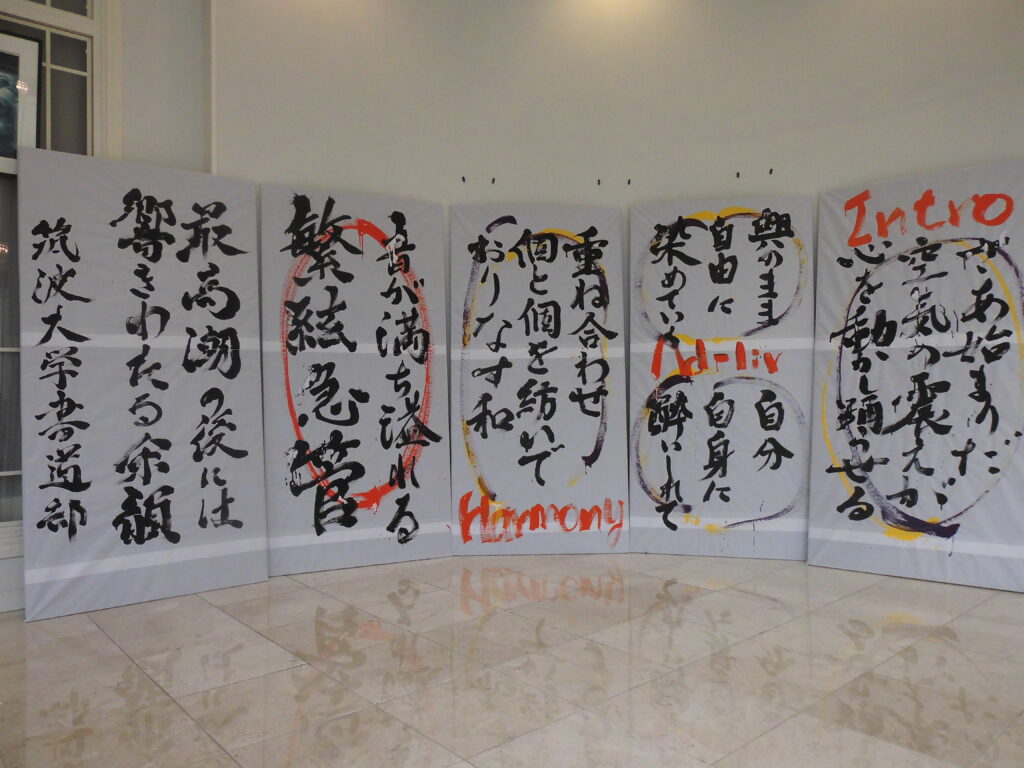 Intro
さあ始まりだ
空氣の震えが
心を動かし踊らせる
興のまま
自由に
染めていく
Ad-liv
自分
自身に
酔いしれて
重ね合わせ
個と個を紡いで
おりなす和
Harmony
音が満ち溢れる
繁絃急管
最高潮の後には
響きわたる余韻
筑波大学書道部